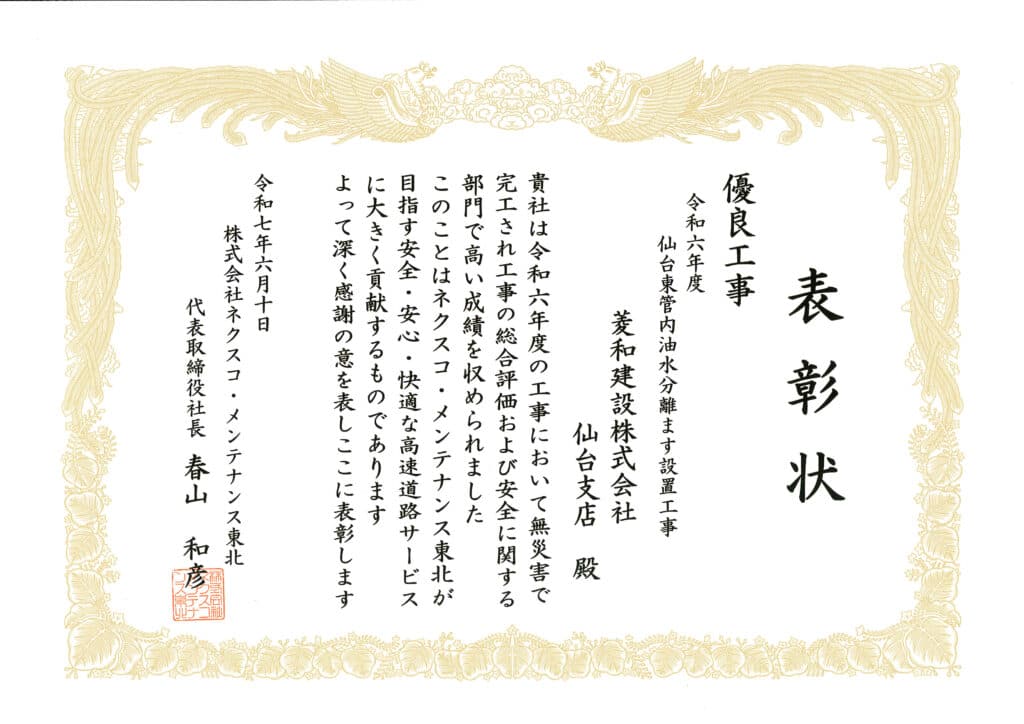 表彰状
優良工事
令和六年度
仙台東管内油水分離ます設置工事
菱和建設株式会社
仙台支店 殿
貴社は令和六年度の工事において無災害で
完工され工事の総合評価および安全に関する
部門で高い成績を収められました
このことはネクスコ・メンテナンス東北が
目指す安全・安心・快適な高速道路サービス
に大きく貢献するものであります
よって深く感謝の意を表しここに表彰します
令和七年六月十日
株式会社ネクスコ・メンテナンス東北
代表取締役社長 春山 和彦